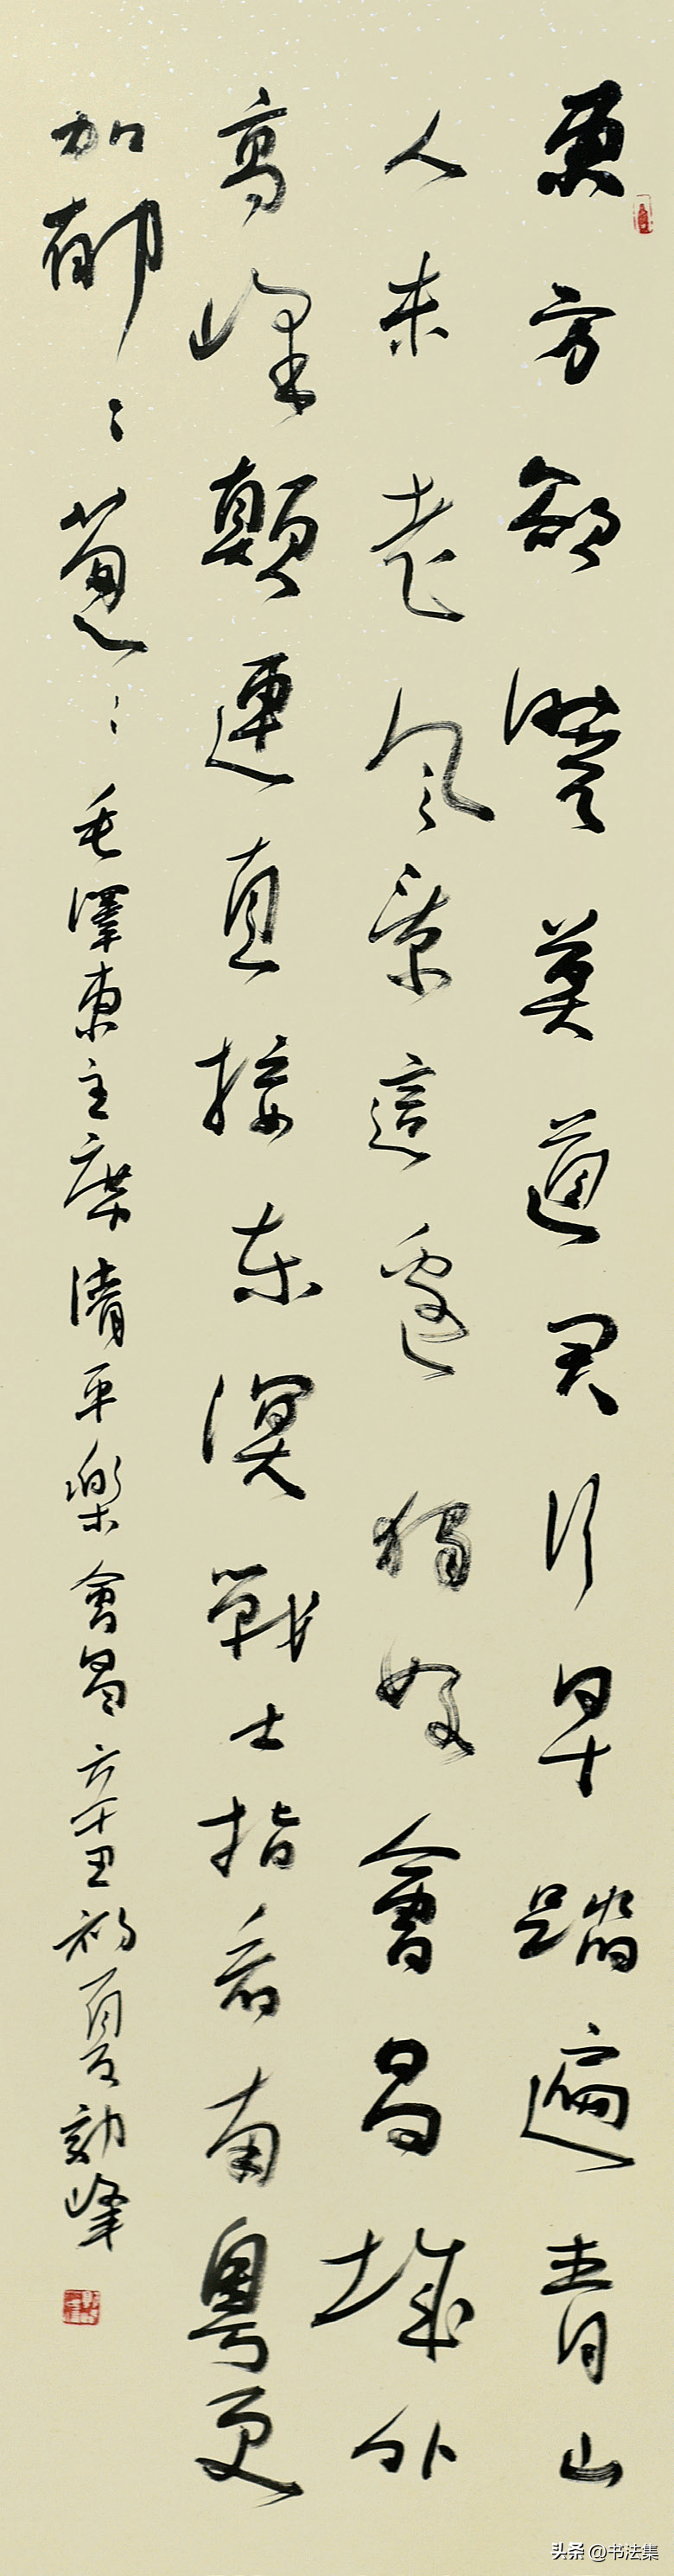 東方欲曉莫道君行早踏遍青山
人未老风景這邊獨好會昌城外
高峰顛連直接东溟戰士指看南粵更
加郁々葱々毛澤東主席清平樂會昌辛丑初夏峰
头条 @书法集